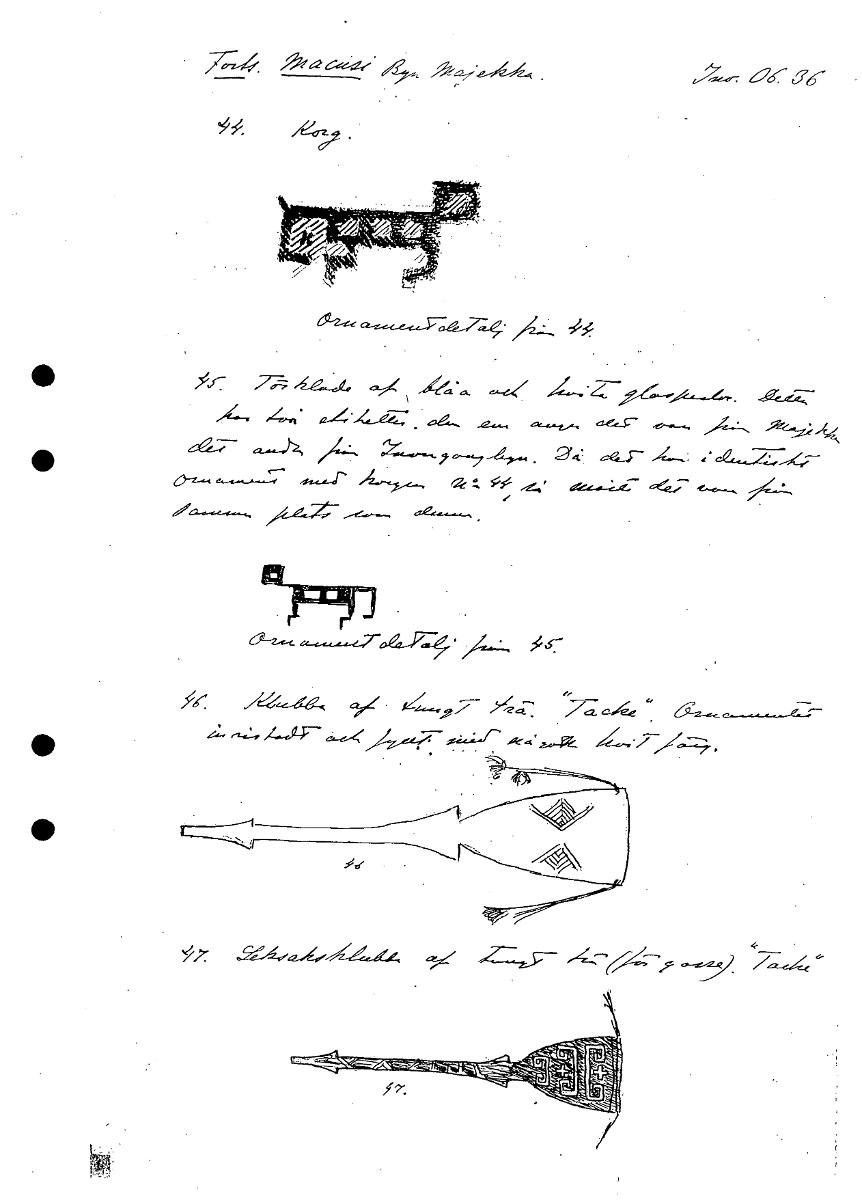 Forts. Macusi Byn Majekka.
Inv. 06. 36
44. Korg.
Ornamentdetalj från 44.
45. Förkläde af blåa och hvita glasperlor. Detta
har två etiketter, den ena anger det vara från Majekka
det andra från Inongongbyn. Då det har identiskt
ornament med korgen No 44, så måste det vara från
samma plats som denna.
Ornamentdetalj från 45.
46. Klubba af tungt trä. "Tacke". Ornamentet
inristadt och fyldt med hvit färg.
46
47. Leksaksklubba af tungt trä (för gosse). "Tacke"
47.